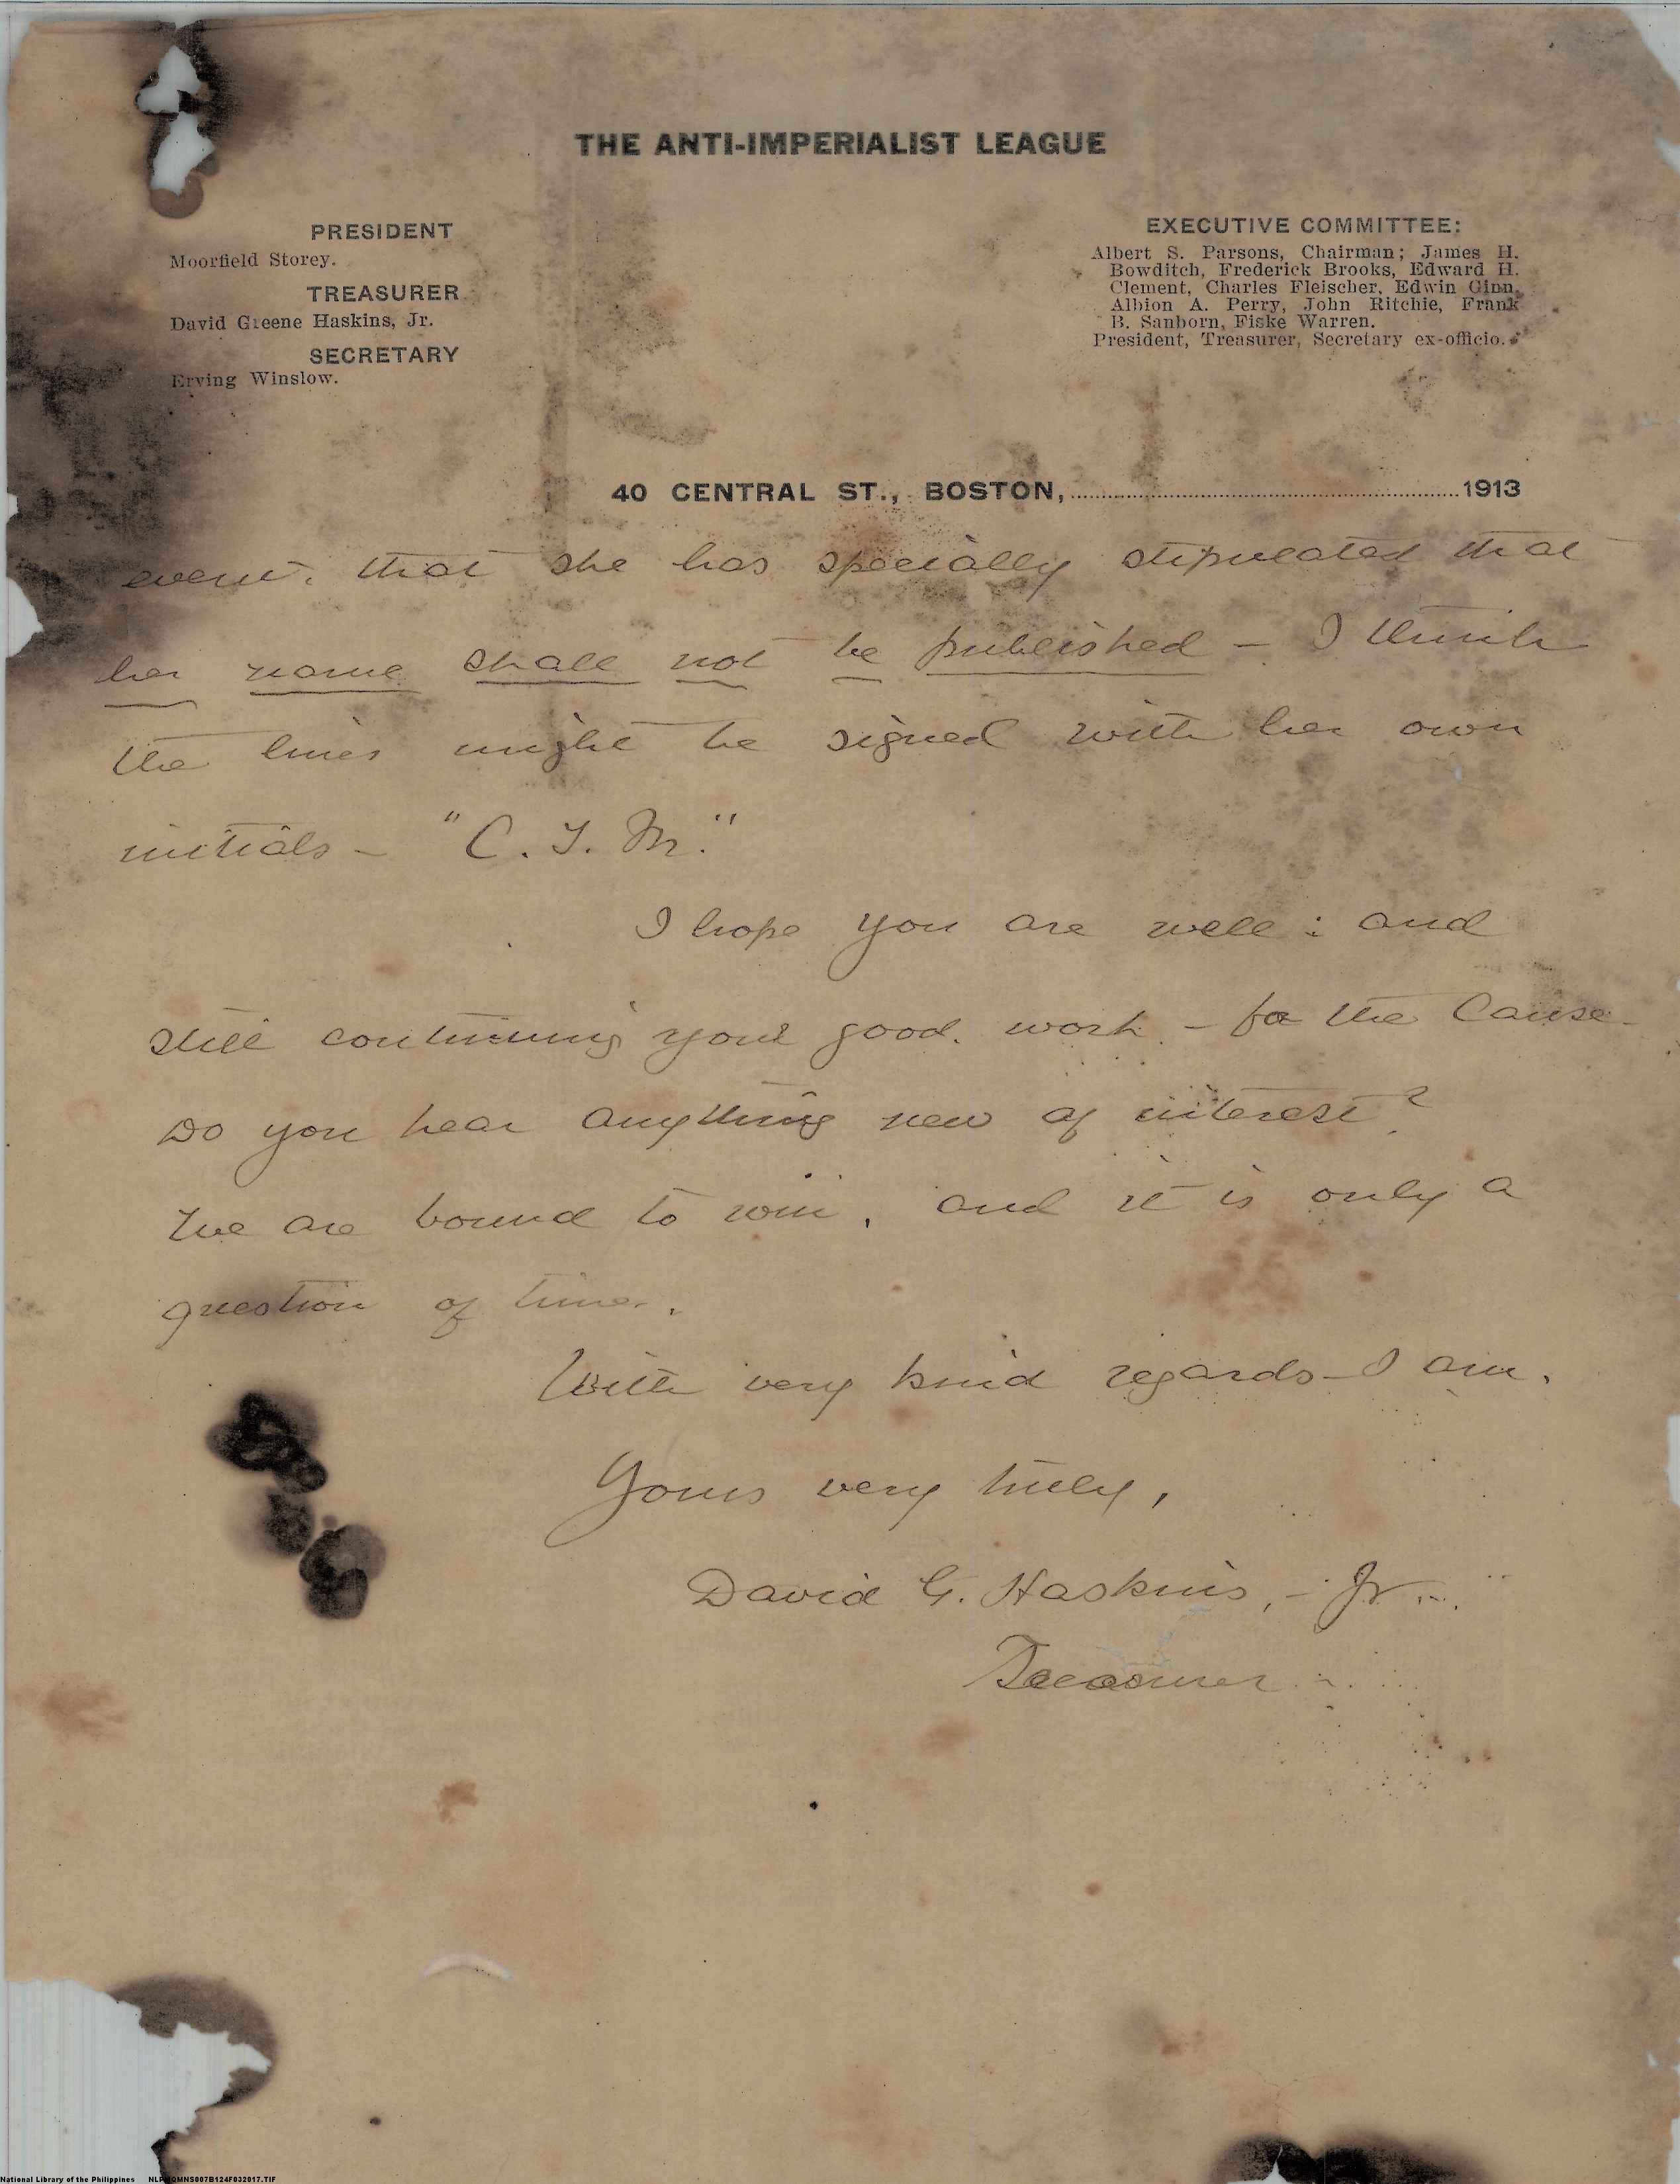 THE ANTI-IMPERIALIST LEAGUE
PRESIDENT
Moorfield Storey.
TREASURER
David Greene Haskins, Jr.
SECRETARY
Erving Winslow.
EXECUTIVE COMMITTEE:
Albert S. Parsons, Chairman; James H.
Bowditch, Frederick Brooks, Edward H.
Clement, Charles Fleischer, Edwin Ginn,
Albion A. Perry, John Ritchie, Frank
B. Sanborn, Fiske Warren.
President, Treasurer, Secretary ex-officio.
40 CENTRAL ST., BOSTON, 1913
event. that she has specially stipulated that
her name shall not be published - I think
the lines might be signed with her own
initials - "C. M."
I hope you are well: and
still continuing your good work - for the Cause
Do you hear anything new of interest?
We are bound to win, and it is only a
question of time.
With very kind regards - I am,
Yours very truly,
David G. Haskins, Jr.
Treasurer
National Library of the Philippines